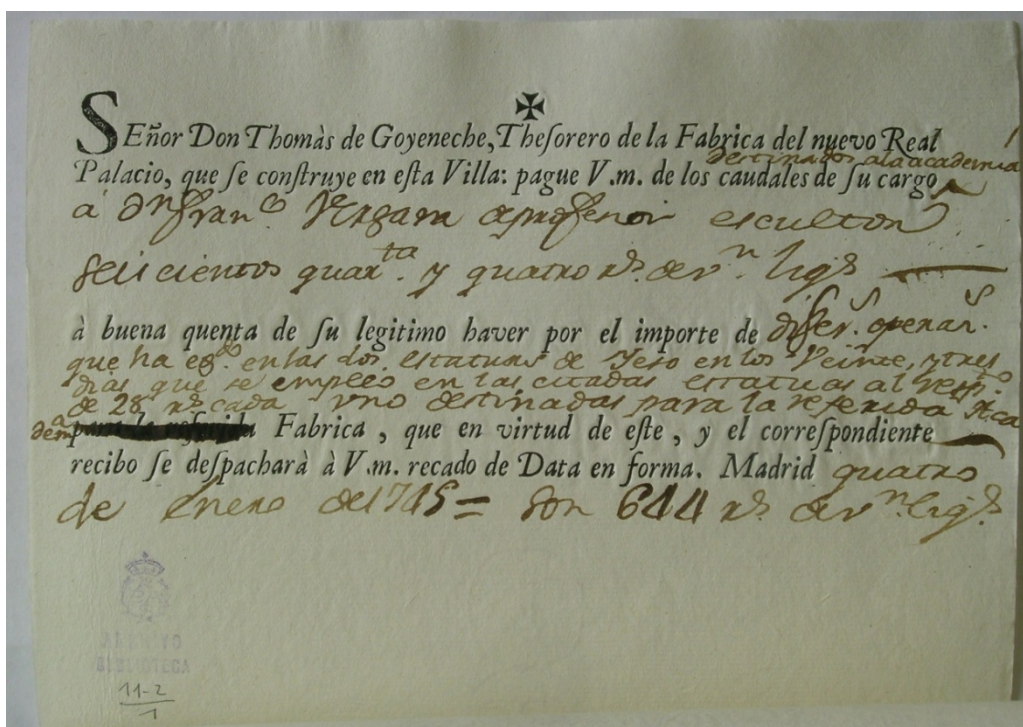 ✠
SEñor Don Thomàs de Goyeneche, Thesorero de la Fabrica del nuevo Real
destinados ala academia
Palacio, que se construye en esta Villa: pague V.m. de los caudales de su cargo
á Dn. Franco. Vergara profesor escultor
seiscientos quarta. y quatro rs. de vn. liqs.
à buena quenta de su legitimo haver por el importe de difers. operars.
que ha en las dos estatuas de Yeso en los Veinte, y tres
dias que se empleó en las citadas estatuas al resp.
de 28 rs. cada uno destinadas para la referida Aca
dema. Fabrica, que en virtud de este, y el correspondiente
recibo se despacharà à V.m. recado de Data en forma. Madrid quatro
de enero de 1745 = son 644 rs. de vn. liqs.
BIBLIOTECA
11-2
1